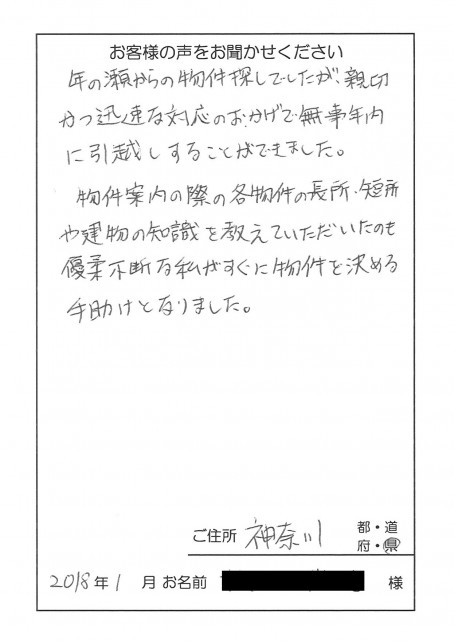 お客様の声をお聞かせください
年の瀬からの物件探しでしたが、親切
かつ迅速な対応のおかげで無事年内
に引越しすることができました。
物件案内の際の各物件の長所・短所
や建物の知識を教えていただいたのも
優柔不断な私がすぐに物件を決める
手助けとなりました。
ご住所 神奈川 都・道
府・県
2018年1月 お名前 様